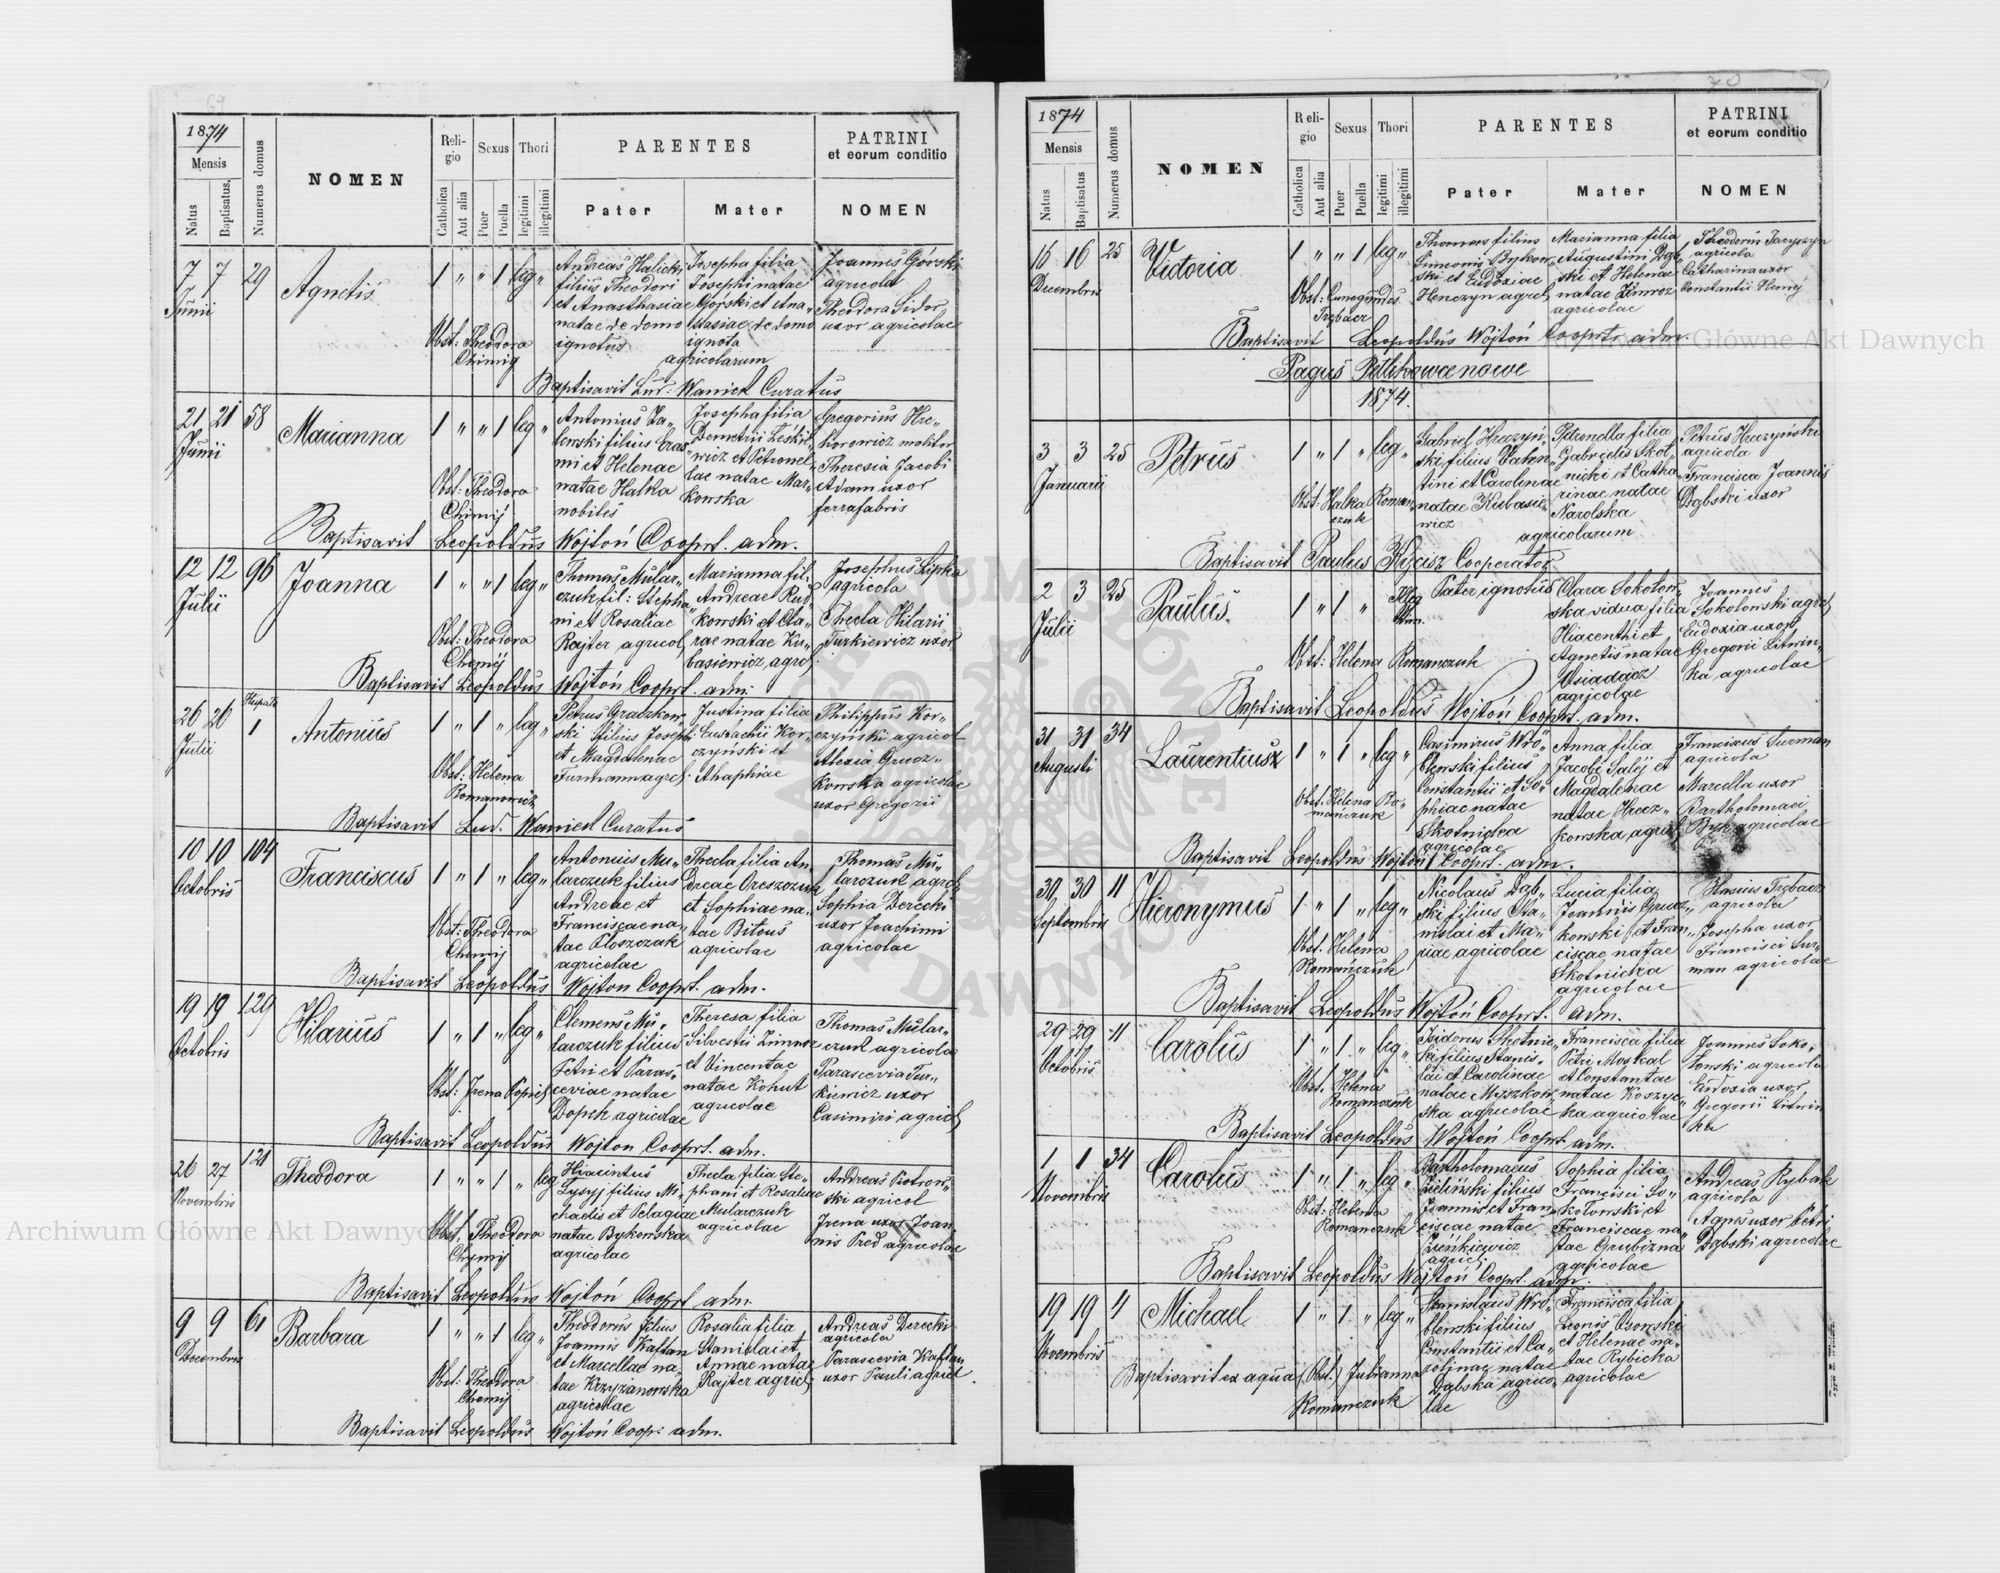 1874
Mensis
Natus
Baptisatus.
Numerus domus
NOMEN
Religio
Catholica
Aut alia
Sexus
Puer
Puella
Thori
legitimi
illegitimi
PARENTES
Pater
Mater
PATRINI
et eorum conditio
NOMEN
7 7 29 Agnetis 1 " " 1 leg "
Junii
Andreas Halicki
filius Theodori
et Anasthasiae
natae de domo
ignotus
Josepha filia
Josephi natae
Górski et Ana„
stasiae de domo
ignota
agricolarum
Joannes Górski
agricola
Theodora Sidor
uxor agricolae
Obst: Theodora
Chimij
Baptisavit Lud: Waniek Curatus
21 21 58 Marianna 1 " " 1 leg "
Junii
Antonius Za„
lewski filius Eras„
mi et Helenae
natae Halka
nobiles
Josepha filia
Demetrii Leskie„
wicz et Petronel„
lae natae Mar„
kowska
Gregorius Hre„
horowicz molitor
Theresia Jacobi
Adam uxor
ferrafabris
Obst: Theodora
Chimij
Baptisavit Leopoldus Wojtoń Cooprt. adm.
12 12 96 Joanna 1 " " 1 leg "
Julii
Thomas Mular„
czuk fil: Stepha„
ni et Rosaliae
Rajter agricol
Marianna fil:
Andreae Rud„
kowski et Cla„
rae natae Ku„
basiewicz agrc
Josephus Lipka
agricola
Thecla Hilarii
Turkiewicz uxor
Obst: Theodora
Chemij
Baptisavit Leopoldus Wojtoń Cooprt. adm.
26 26 1 Antonius 1 " 1 " leg "
Julii
Petrus Graczkow„
ski filius Josephi
et Magdalenae
Furman agrc
Justina filia
Eustachii Kor„
czyński et
Ahaphiae
Philippus Kor„
czyński agricol
Alexia Grucz„
kowska agricolae
uxor Gregorii
Obst: Helena
Romanowicz
Baptisavit Lud. Waniek Curatus
10 10 104 Franciscus 1 " 1 " leg "
Octobris
Antonius Mu„
larczuk filius
Andreae et
Franciscae na„
tae Płoszczak
agricolae
Thecla filia An„
dreae Oreszczuk
et Sophiae na„
tae Bitous
agricolae
Thomas Mu„
larczuk agrcl
Sophia Derecki
uxor Joachimi
agricolae
Obst: Theodora
Chemij
Baptisavit Leopoldus Wojton Cooprt. adm.
19 19 129 Hilarius 1 " 1 " leg "
Octobris
Clemens Mu„
larczuk filius
Petri et Paras„
ceviae natae
Dopek agricolae
Theresa filia
Silvestri Zimroz
et Vincentae
natae Kohut
agricolae
Thomas Mular„
czuk agricola
Parascevia Tur„
kiewicz uxor
Casimiri agricl
Obst: Irena Popiel
Baptisavit Leopoldus Wojton Cooprt. adm.
26 27 121 Theodora 1 " " 1 " leg
Novembris
Hiacintus
Łysyj filius Mi„
chaelis et Pelagiae
natae Bykowska
agricolae
Thecla filia Ste„
phani et Rosaliae
Mularczuk
agricolae
Andreas Piotrow„
ski agricol
Irena uxor Joan„
nis Pred agricolae
Obst. Theodora
Chymij
Baptisavit Leopoldus Wojtoń Cooprt adm.
9 9 61 Barbara 1 " " 1 leg "
Decembris
Theodorus filius
Joannis Kaftan
et Marcellae na„
tae Krzyżanowska
agricolae
Rosalia filia
Stanislai et
Annae natae
Rajter agricl
Andreas Derecki
agricola
Parascevia Kaftan
uxor Pauli agricl
Obst: Theodora
Chemij
Baptisavit Leopoldus Wojtoń Coop: adm.
70
1874
Mensis
Natus
Baptisatus
Numerus domus
NOMEN
Religio
Catholica
Aut alia
Sexus
Puer
Puella
Thori
legitimi
illegitimi
PARENTES
Pater
Mater
PATRINI
et eorum conditio
NOMEN
16 16 25 Victoria 1 " " 1 leg "
Decembris
Thomas filius
Simeonis Bykow„
ski et Eudoxiae
Henczyn agrcl
Marianna filia
Augustini Dąb„
ski et Helenae
natae Zimroz
agricolae
Theodorus
agricola
Catharina uxor
Constantii
Obst: Cunegundes
Trębacz
Baptisavit Leopoldus Wojtoń Cooprt. adm.
Pagus Petlikowce nowe
1874.
3 3 25 Petrus 1 " 1 " leg "
Januarii
Gabriel Hreczyń„
ski filius Valen„
tini et Carolinae
natae Kubasie„
wicz
Petronella filia
Gabrielis Skot„
nicki et Catha„
rinae natae
Narolska
agricolarum
Petrus Hreczyński
agricola
Francisca Joannis
Dąbski uxor
Obst: Halka Roman„
czuk
Baptisavit Paulus Kizcisz Cooperator
2 3 25 Paulus. 1 " 1 "
Julii
Pater ignotus
Clara Sokołow„
ska vidua filia
Hiacenthi et
Agnetis natae
Usiadacz
agricolae
Joannes
Sokolowski agrcl
Eudoxia uxor
Gregorii Litwin„
ka agricolae
Obst: Helena Romanczuk
Baptisavit Leopoldus Wojtoń Cooprt. adm.
31 31 34 Laurentiusz 1 " 1 " leg "
Augusti
Casimirus Wró„
blewski filius
Constantii et So„
phiae natae
Skotnicka
agricolae
Anna filia
Jacobi Salij et
Magdalenae
natae Hrecz„
kowska, agricl
Franciscus Surman
agricola
Marcella uxor
Bartholomaei
Byk agricolae
Obst: Helena Ro„
mańczuk
Baptisavit Leopoldus Wojtoń Cooprt. adm.
30 30 11 Hieronymus 1 " 1 " leg "
Septembris
Nicolaus Dąb„
ski filius Sta„
nislai et Ma„
riae agricolae
Lucia filia
Joannis Grucz„
kowski et Fran„
ciscae natae
Skotnicka
agricolae
Blasius Trębacz
agricola
Josepha uxor
Francisci Sur„
man agricolae
Obst. Helena
Romańczuk
Baptisavit Leopoldus Wojtoń Cooprt. adm.
29 29 11 Carolus 1 " 1. " leg "
Octobris
Isidorus Skotnic„
ki filius Stanis„
lai et Carolinae
natae Myszkow„
ska agricolae
Francisca filia
Petri Moskal
et Constantae
natae Koszyc„
ka agricolae
Joannes Soko„
łowski agricola
Eudoxia uxor
Gregorii Litwin
ka
Obst. Helena
Romanczuk
Baptisavit Leopoldus Wojtoń Cooprt. adm.
1 1 34 Carolus 1 " 1 " leg "
Novembris
Bartholomaeus
Zieliński filius
Joannis et Fran„
ciscae natae
Zieńkiewicz
agricl
Sophia filia
Francisci So„
kolowski et
Franciscae na„
tae Grubizna
agricolae
Andreas Rybak
agricola
Agnes uxor Petri
Dąbski agricolae
Obst: Helena
Romanczuk
Baptisavit Leopoldus Wojtoń Cooprt. adm.
19 19 4 Michael 1 " 1. " leg "
Novembris
Stanislaus Wró„
blewski filius
Constantii et Ca„
rolinae natae
Dąbska agrico„
lae
Francisca filia
Leonis Osowski
et Helenae na„
tae Rybicka
agricolae
Baptisavit ex aqua (Obst.) Julianna
Romanczuk
Archiwum Główne Akt Dawnych
Archiwum Główne Akt Dawnych